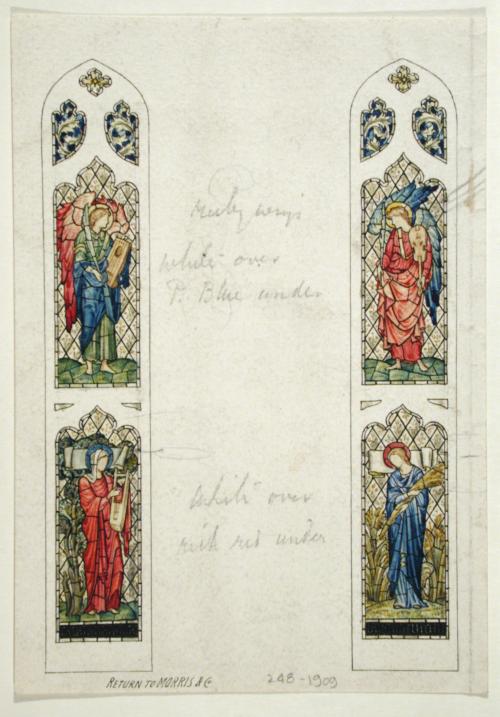 Ruby wings
white over
P. Blue under
white over
rich red under
RETURN TO MORRIS & Co
248-1909